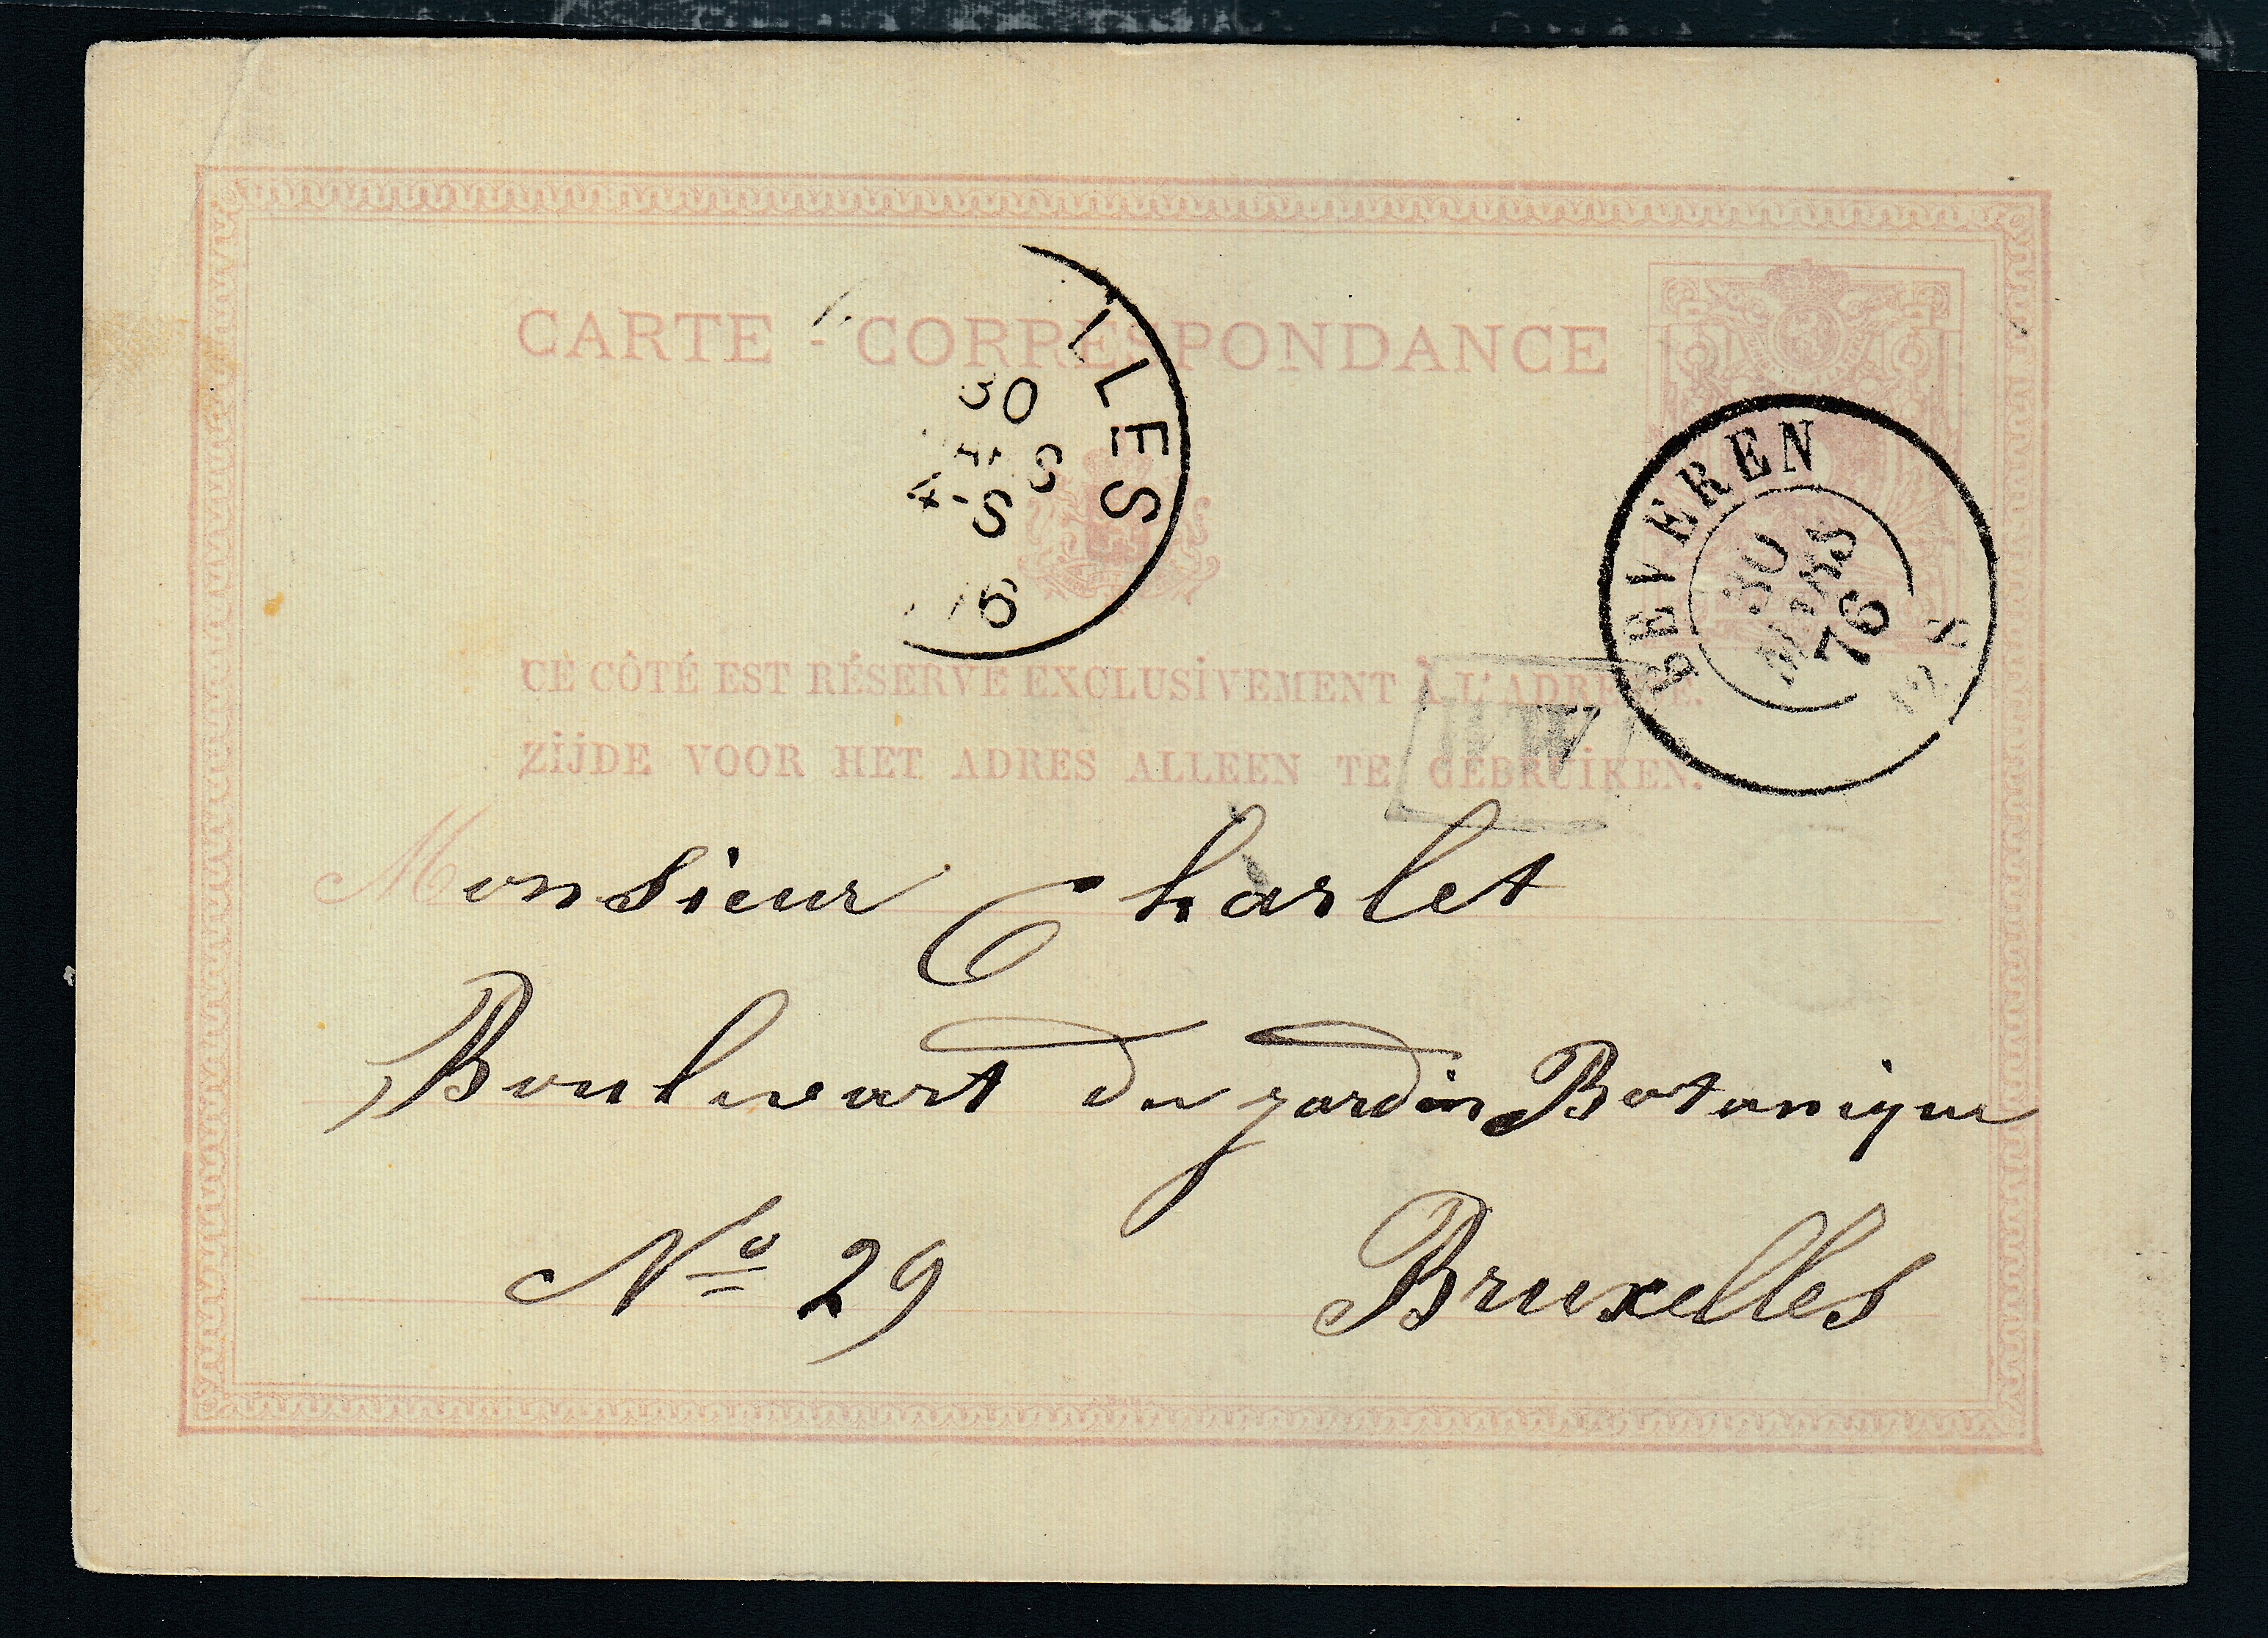 CARTE - CORRESPONDANCE
LLES
30
S
4-S
76
BEVEREN
30
MARS
76
CE CÔTÉ EST RÉSERVÉ EXCLUSIVEMENT À L'ADRESSE.
ZIJDE VOOR HET ADRES ALLEEN TE GEBRUIKEN.
Monsieur Charlet
Boulevart du jardin Botanique
No 29 Bruxelles